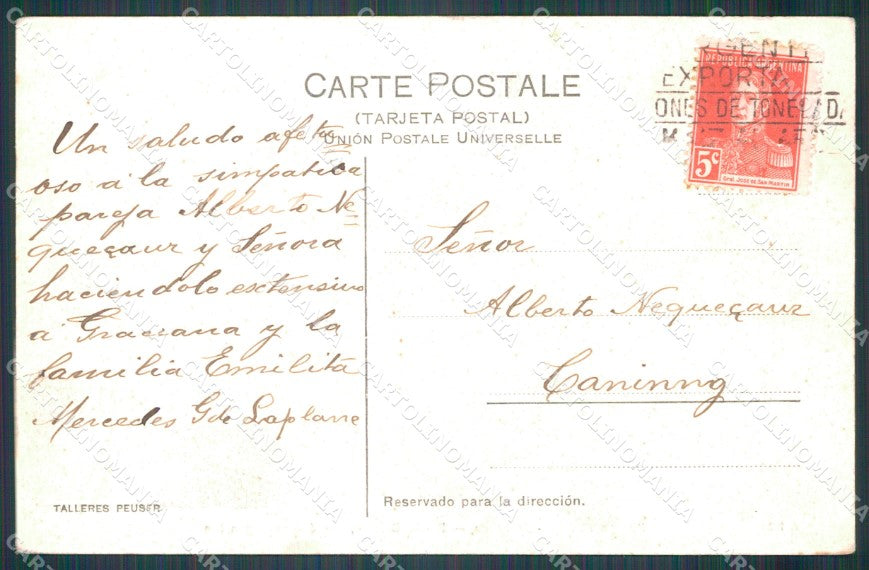 CARTE POSTALE
(TARJETA POSTAL)
UNIÓN POSTALE UNIVERSELLE
ARGENTI
EXPORT
ONES DE TONELADA
REPUBLICA ARGENTINA
5c
Gral. José de San Martín
Un saludo afetu
oso a la simpatica
pareja Alberto Ne=
queçaur y Señora
haciendolo extensivo
a Graciana y la
familia Emilita
Mercedes G de Laplane
Señor
Alberto Nequeçaur
Caninng
TALLERES PEUSER
Reservado para la dirección.
CARTOLINOMANIA